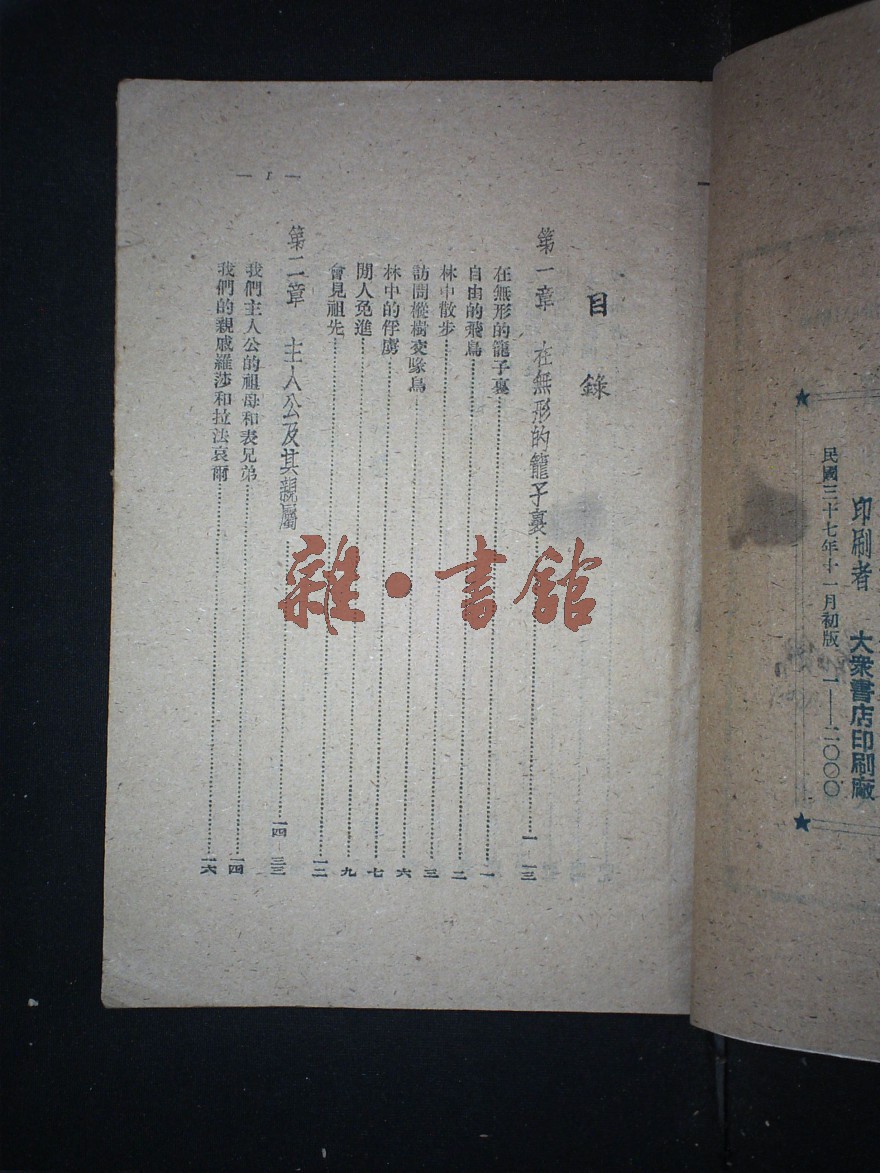 民國三十七年十一月初版 一——二〇〇〇
印刷者 大衆書店印刷廠
— 1 —
目錄
第一章 在無形的籠子裏 一 一三
在無形的籠子裏 一
自由的飛鳥 二
林中散步 三
訪問樅樹交喙鳥 六
林中的俘虜 七
閒人免進 九
會見祖先 一二
第二章 主人公及其親屬 一四 三三
我們主人公的祖母和表兄弟 一四
我們的親戚羅莎和拉法哀爾 一六
雜·書館